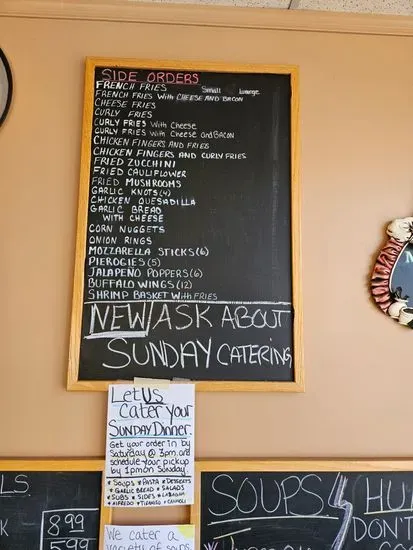 SIDE ORDERS
FRENCH FRIES Small Large
FRENCH FRIES With CHEESE AND BACON
CHEESE FRIES
CURLY FRIES
CURLY FRIES With Cheese
CURLY FRIES With Cheese and BACON
CHICKEN FINGERS AND FRIES
CHICKEN FINGERS AND CURLY FRIES
FRIED ZUCCHINI
FRIED CAULIFLOWER
FRIED MUSHROOMS
GARLIC KNOTS(4)
CHICKEN QUESADILLA
GARLIC BREAD
WITH CHEESE
CORN NUGGETS
ONION RINGS
MOZZARELLA STICKS(6)
PIEROGIES(5)
JALAPEÑO POPPERS(6)
BUFFALO WINGS(12)
SHRIMP BASKET With FRIES
NEW ASK ABOUT
SUNDAY CATERING
Let US
Cater Your
SUNDAY Dinner.
Get your order in by
Saturday @ 3pm. and
schedule your pickup
by 1pm on Sunday.
* Soups * Pasta * Desserts
* GARLIC BREAD * SALADS
* SUBS * SIDES * LASAGNA
* ALFREDO * TIRAMISU * CANNOLI
We cater a
variety of soups
LS
K 8.99
5.99
SOUPS
HU
DON'